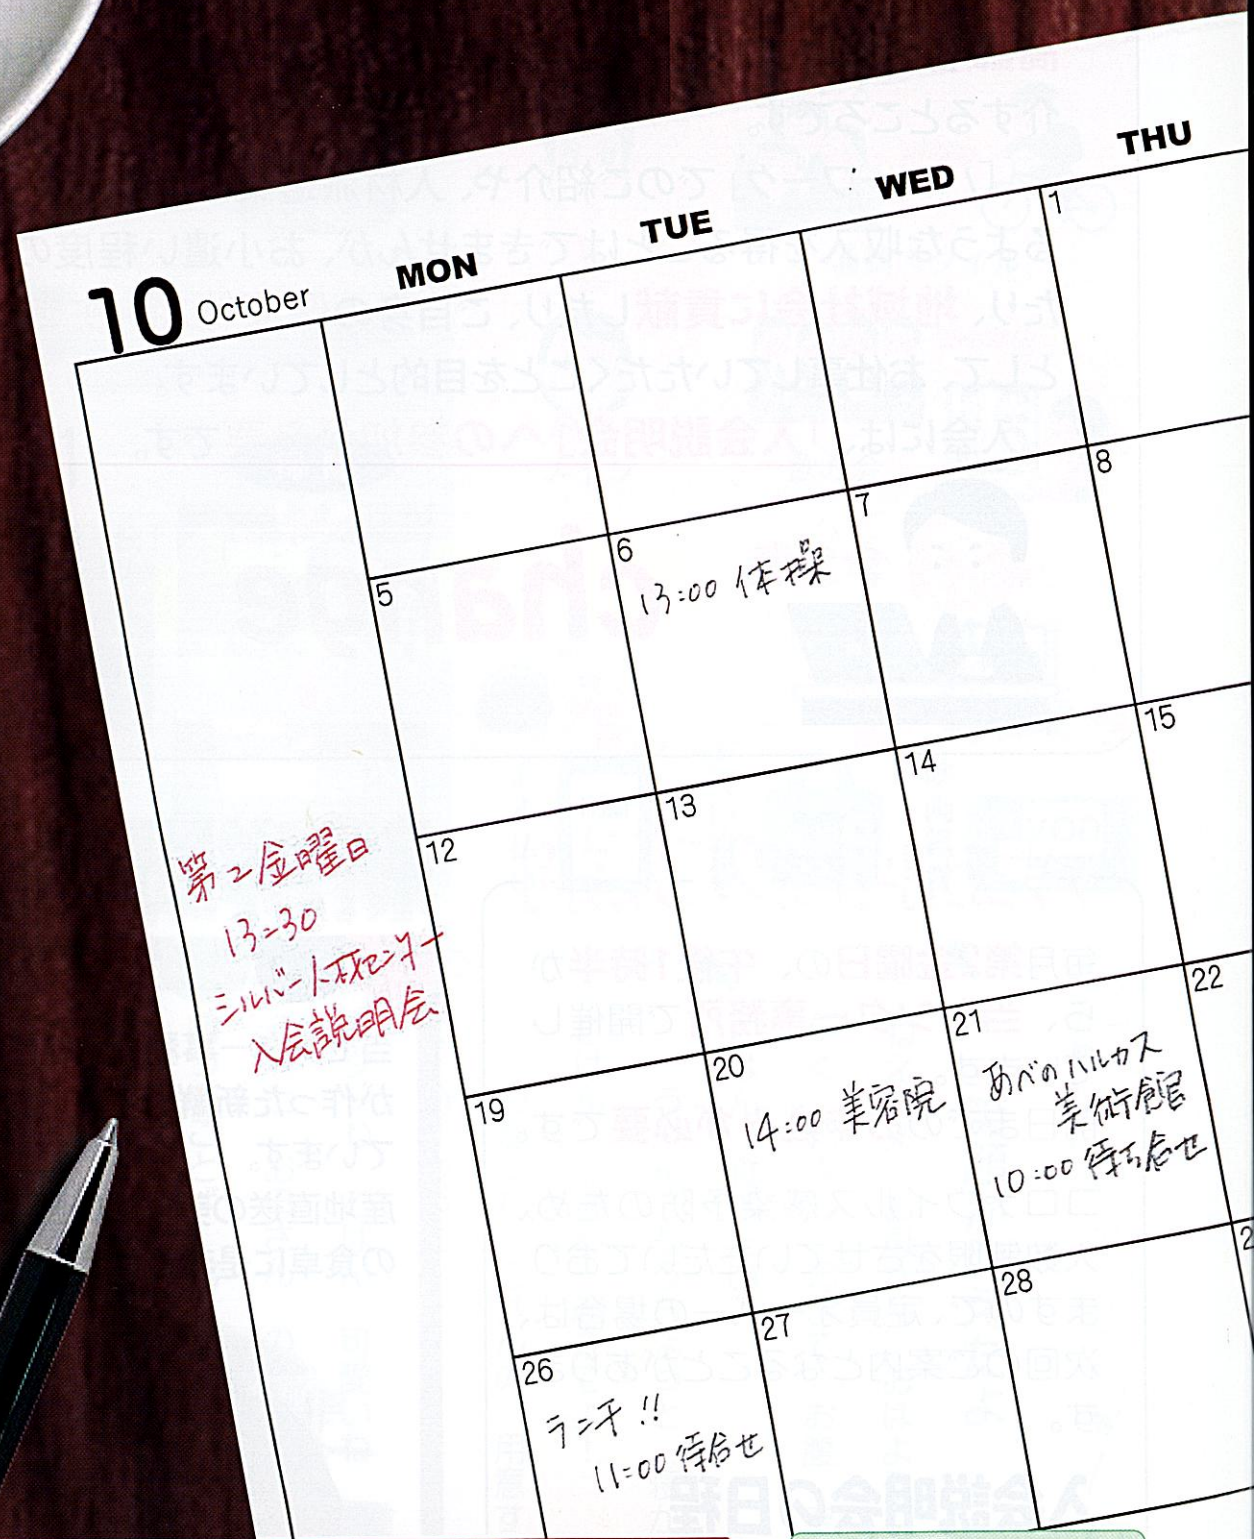 10 October
MON
TUE
WED
THU
1
5
6
13:00 体操
7
8
12
13
14
15
第2金曜日
13=30
シルバー人材センター
入会説明会
19
20
14:00 美容院
21
あべのハルカス
美術館
10:00 待ち合せ
22
26
ランチ!!
11:00 待合せ
27
28